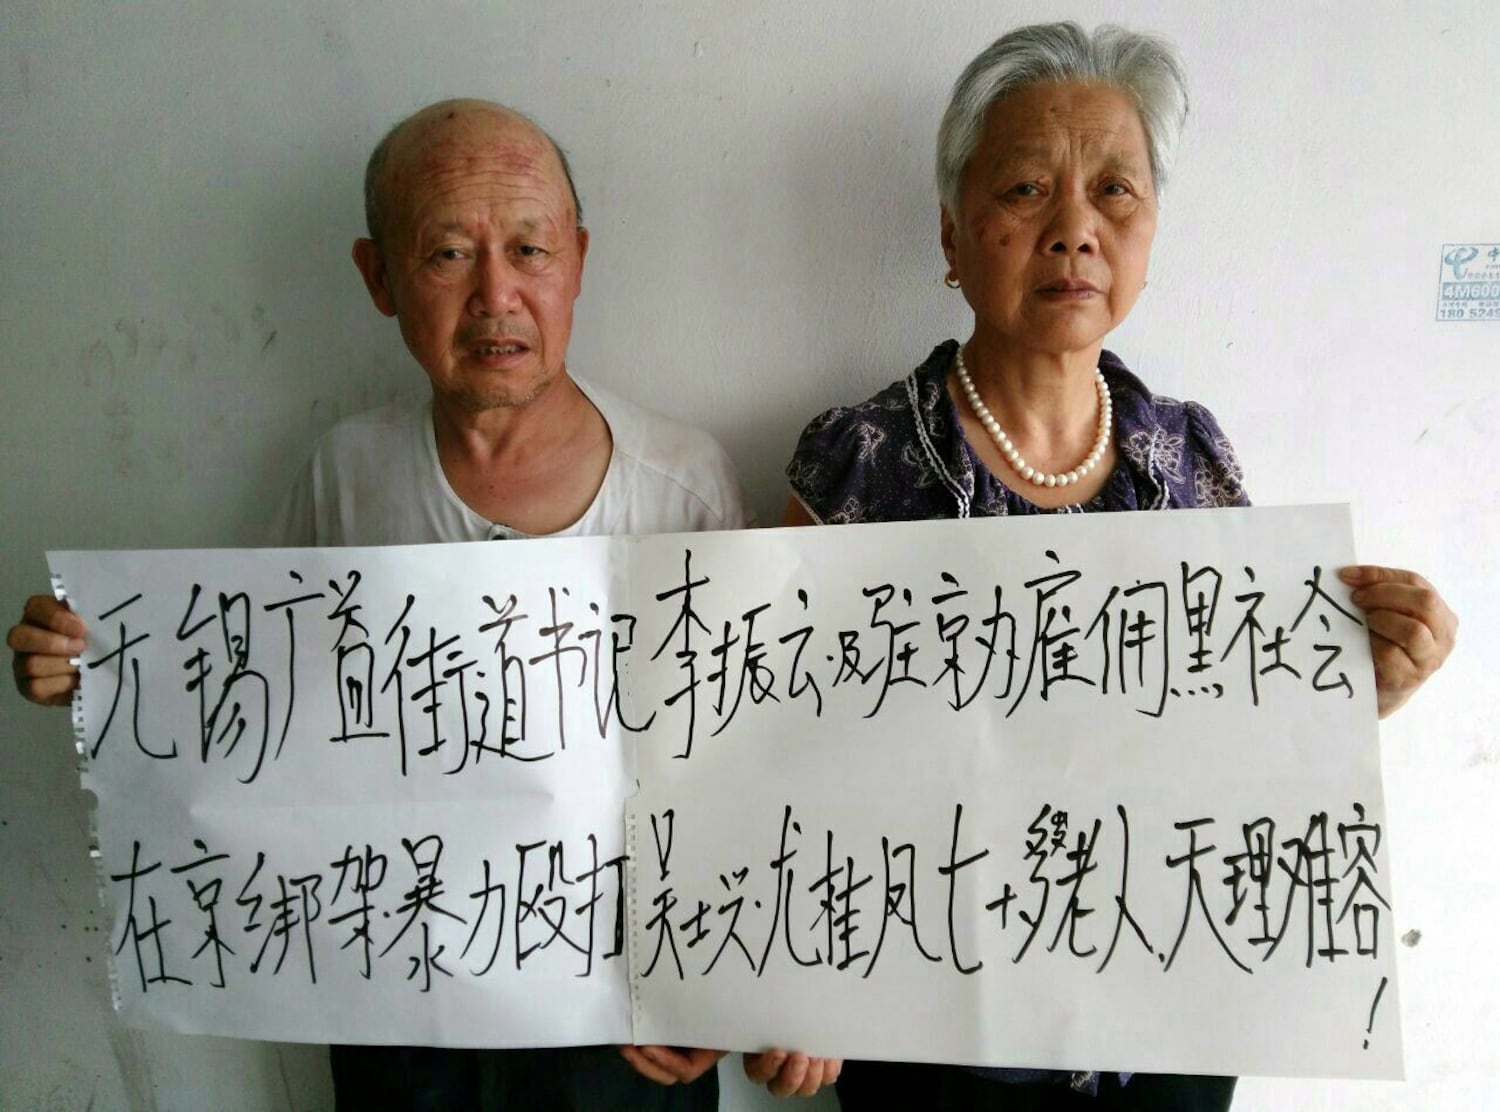 无锡广益街道书记李振云及驻京办雇佣黑社会
在京绑架.暴力殴打吴士兴.尤桂凤七十多岁老人.天理难容!
中
4M600
180 5249